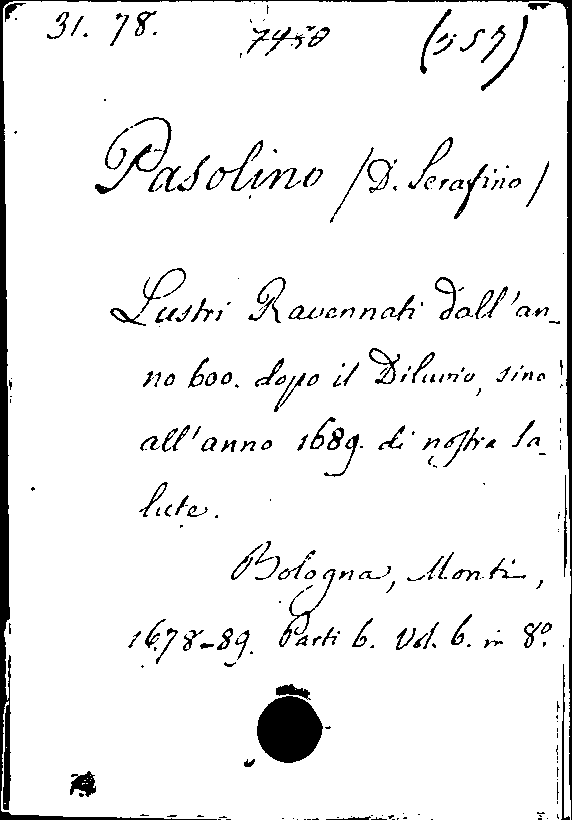 31. 78. 7450 (557)
Pasolino /D. Serafino/
Lustri Ravennati dall'an-
no 600. dopo il Diluvio, sino
all'anno 1689. di nostra sa-
lute.
Bologna, Monti,
1678-89. Parti 6. Vol. 6. in 8º.